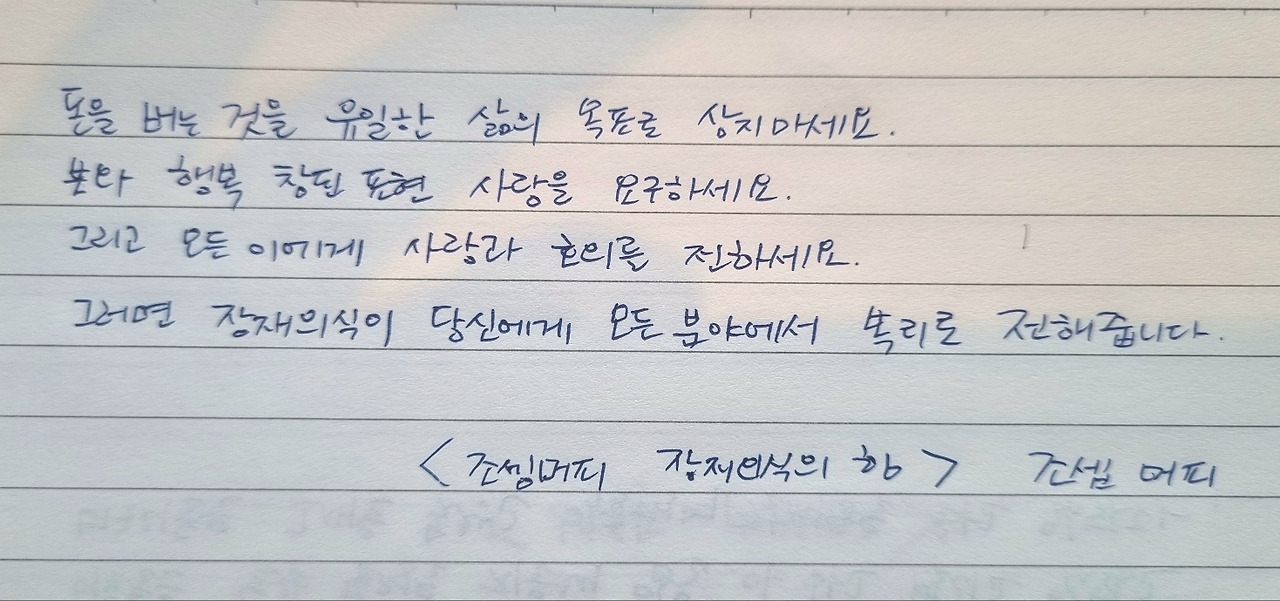 돈을 버는 것을 유일한 삶의 목표로 삼지마세요.
행복 참된 표현 사랑을 요구하세요.
그리고 모든 이에게 사랑과 호의를 전하세요.
그러면 잠재의식이 당신에게 모든 분야에서 복리로 전해줍니다.
<조셉머피 잠재의식의 힘> 조셉 머피